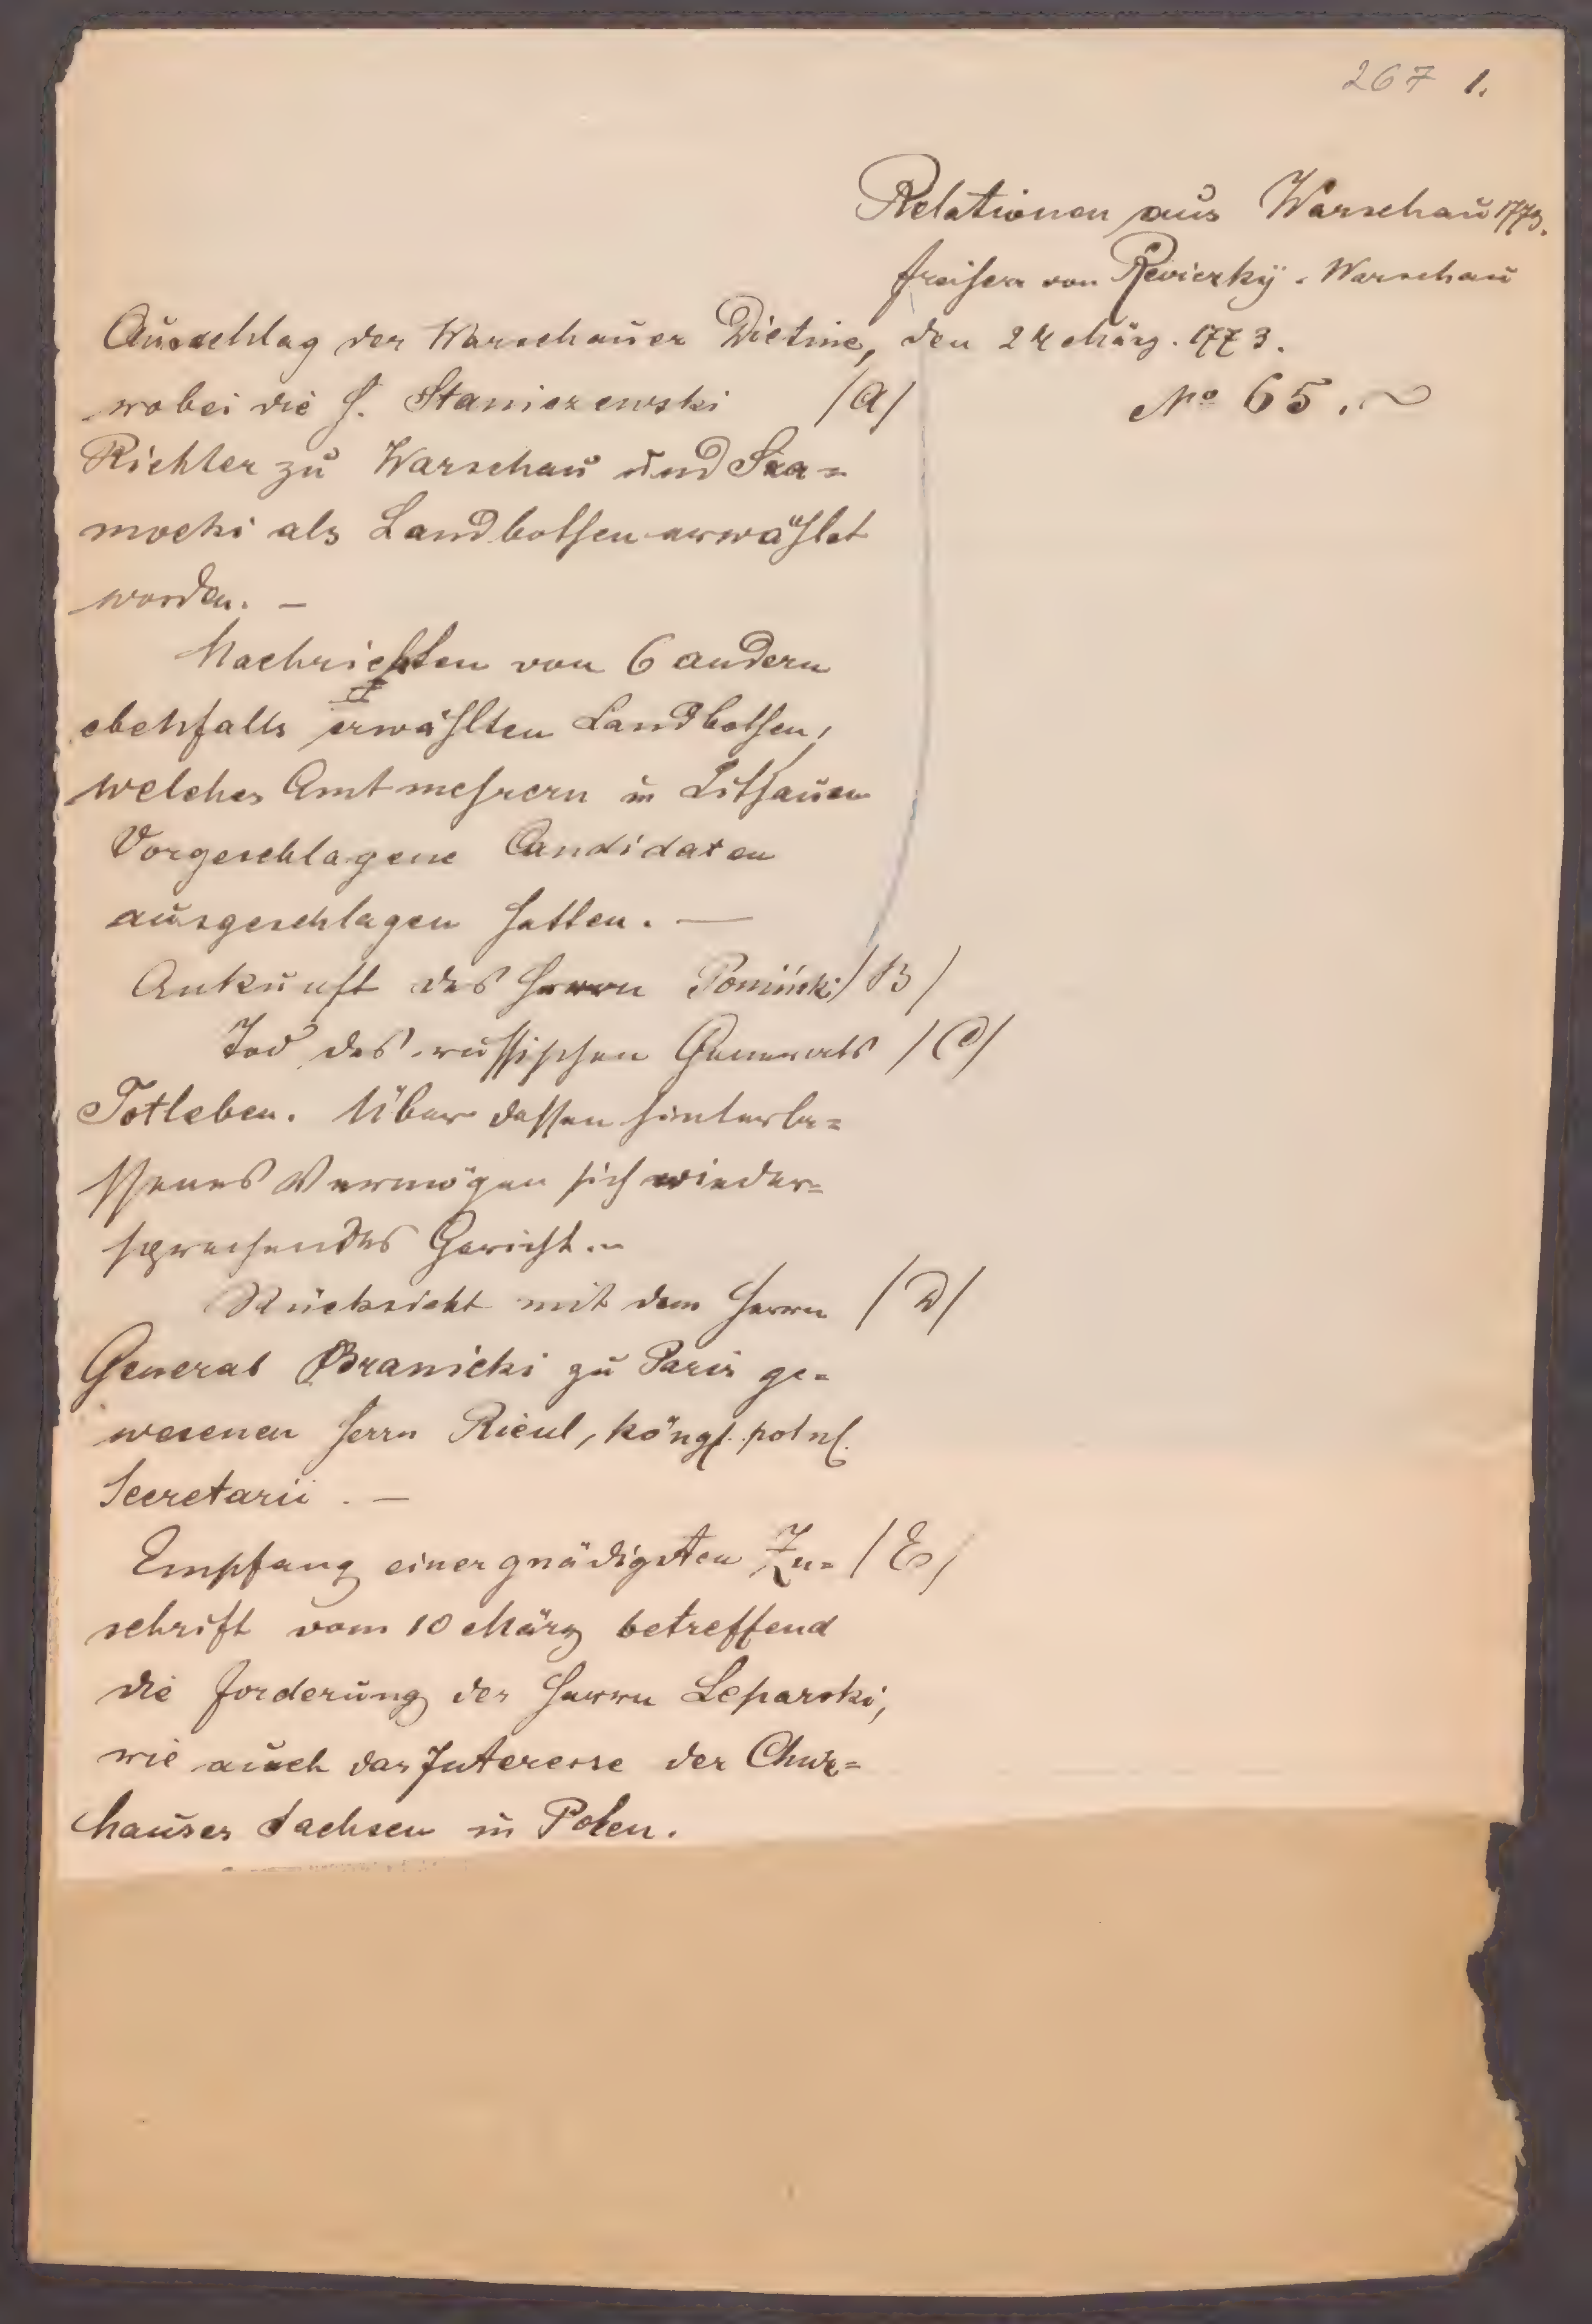 267 1.
Relationen aus Warschau 1773.
Freiherr von Reviczky. Warschau
Ausschlag der Warschauer Dietine, den 24 März. 1773.
wobei die H. Staniszewski /A/ No 65.
Richter zu Warschau und Sza=
mocki als Landbothen erwählet
worden. —
Nachrichten von 6 andern
ebenfalls erwählten Landbothen,
welches Amt mehrern in Lithauen
Vorgeschlagene Candidaten
ausgeschlagen hatten. —
Ankunft des Herrn Poniński /B/
Tod des russischen Generals /C/
Totleben. Über dessen hinterla=
ssenes Vermögen sich wieder=
sprechendes Gericht. –
Rücksicht mit dem Herrn /D/
General Branicki zu Paris ge=
wesenen Herrn Rieul, köngl. polnl.
Secretarii. —
Empfang einer gnädigsten Zu= /E/
schrift vom 10 März betreffend
die Forderung des Herrn Leparski,
wie auch das Interesse des Chur=
hauses Sachsen in Polen.